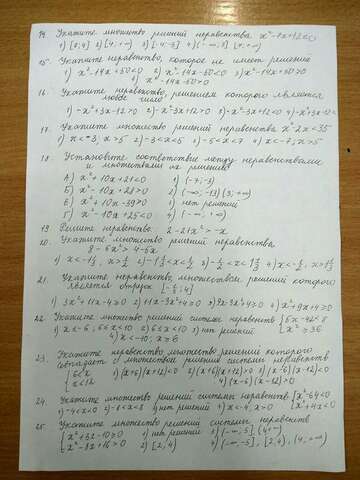 14. Укажите множество решений неравенства
1) [3; 4] 2) [4; +∞) 3) [-4; -3] 4) (-∞; 3] [4; +∞)
15. Укажите неравенство, которое не имеет решений
1) x²-14x+50<0 2) x²-14x-50<0 3) x²-14x+50>0
4) x²-14x-50>0
16. Укажите неравенство, решением которого является
любое число
1) -x²+3x-12>0 2) -x²-3x+12>0 3) -x²-3x+12<0 4) -x²+3x-12<0
17. Укажите множество решений неравенства x²-2x<35
2) -3<x<5 3) -5<x<7 4) x<-7; x>5
18. Установите соответствие между неравенствами
и множествами их решений:
А) x²+10x+21<0 1) (-7; -3)
Б) x²-10x+28>0 2) (-∞; -13) (3; +∞)
В) x²+10x-39>0 3) нет решений
Г) x²-10x+25<0 4) (-∞; +∞)
19. Решите неравенство 2-21x²>-x
20. Укажите множество решений неравенства
8-6x²>4-5x
21. Укажите неравенство, множеством решений которого
является отрезок
1) 3x²+11x-4≥0 2) 4) x²+9x+4≥0
22. Укажите множество решений системы неравенств
1) x<-6, 6≤x<10 2) 6≤x<10 3) нет решений
4) x<-10, x≥6 x²≥36
23. Укажите неравенство, множество решений которого
совпадает с множеством решений системы неравенств
6<x 1) (x+6)(x+12)<0 2) (x+6)(x+12)>0 3) (x-6)(x-12)<0
x<12 4) (x-6)(x-12)>0
24. Укажите множество решений системы неравенств x²-64<0
1) -4<x<0 2) -8<x<8 3) нет решений 4) x<-4, x>0 x²+4x<0
25. Укажите множество решений системы неравенств
1) нет решений 3) (-∞; -5] (4; +∞)
x²-8x+16>0 2) [2, 4) 4) (-∞, -5], [2, 4), (4, +∞)